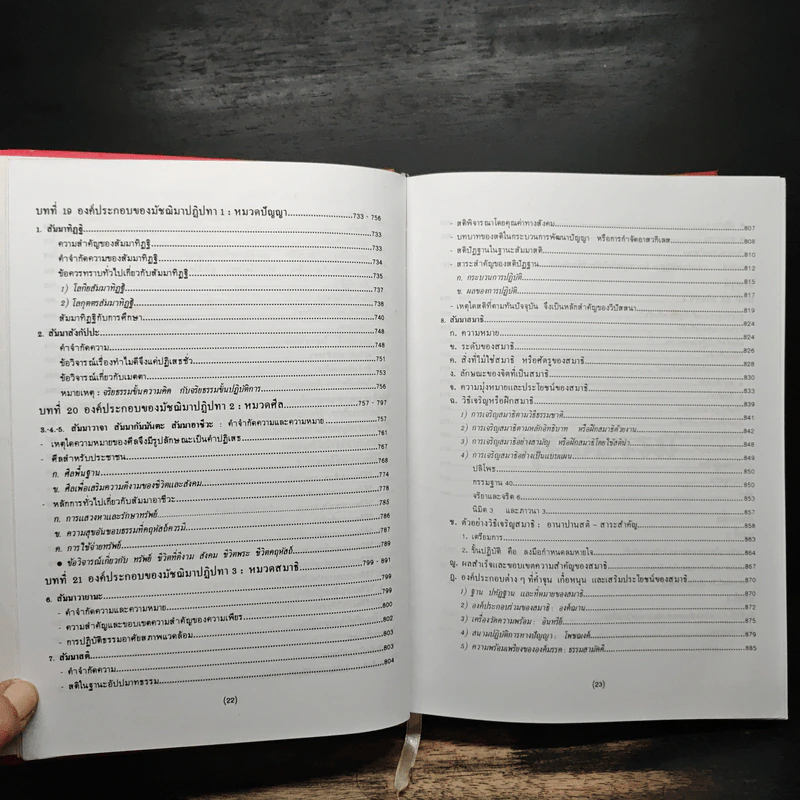 บทที่ 19 องค์ประกอบของมัชฌิมาปฏิปทา 1 : หมวดปัญญา.....733 - 756
1. สัมมาทิฏฐิ.....733
ความสำคัญของสัมมาทิฏฐิ.....733
คำจำกัดความของสัมมาทิฏฐิ.....734
ข้อควรทราบทั่วไปเกี่ยวกับสัมมาทิฏฐิ.....735
1) โลกียสัมมาทิฏฐิ.....737
2) โลกุตตรสัมมาทิฏฐิ.....738
สัมมาทิฏฐิกับการศึกษา.....740
2. สัมมาสังกัปปะ.....748
คำจำกัดความ.....748
ข้อวิจารณ์เรื่องทำไมดีจึงแค่ปฏิเสธชั่ว.....751
ข้อวิจารณ์เกี่ยวกับเมตตา.....753
หมายเหตุ : จริยธรรมขั้นความคิด กับจริยธรรมขั้นปฏิบัติการ.....756
บทที่ 20 องค์ประกอบของมัชฌิมาปฏิปทา 2 : หมวดศีล.....757 - 797
3.-4.-5. สัมมาวาจา สัมมากัมมันตะ สัมมาอาชีวะ : คำจำกัดความและความหมาย.....757
- เหตุใดความหมายของศีลจึงมีรูปลักษณะเป็นคำปฏิเสธ.....761
- ศีลสำหรับประชาชน.....767
ก. ศีลพื้นฐาน.....768
ข. ศีลเพื่อเสริมความดีงามของชีวิตและสังคม.....774
- หลักการทั่วไปเกี่ยวกับสัมมาอาชีวะ.....778
ก. การแสวงหาและรักษาทรัพย์.....785
ข. ความสุขอันชอบธรรมที่คฤหัสถ์ควรมี.....786
ค. การใช้จ่ายทรัพย์.....787
• ข้อวิจารณ์เกี่ยวกับ ทรัพย์ ชีวิตที่ดีงาม สังคม ชีวิตพระ ชีวิตคฤหัสถ์.....789
บทที่ 21 องค์ประกอบของมัชฌิมาปฏิปทา 3 : หมวดสมาธิ.....799 - 891
6. สัมมาวายามะ.....799
- คำจำกัดความและความหมาย.....799
- ความสำคัญและขอบเขตความสำคัญของความเพียร.....800
- การปฏิบัติธรรมอาศัยสภาพแวดล้อม.....802
7. สัมมาสติ.....803
- คำจำกัดความ.....803
- สติในฐานะอัปปมาทธรรม.....804
(22)
- สติพิจารณาโดยคุณค่าทางสังคม.....807
- บทบาทของสติในกระบวนการพัฒนาปัญญา หรือการกำจัดอาสวกิเลส.....808
- สติปัฏฐานในฐานะสัมมาสติ.....810
- สาระสำคัญของสติปัฏฐาน.....812
ก. กระบวนการปฏิบัติ.....815
ข. ผลของการปฏิบัติ.....817
- เหตุใดสติที่ตามทันปัจจุบัน จึงเป็นหลักสำคัญของวิปัสสนา.....819
8. สัมมาสมาธิ.....824
ก. ความหมาย.....824
ข. ระดับของสมาธิ.....826
ค. สิ่งที่ไม่ใช่สมาธิ หรือศัตรูของสมาธิ.....828
ง. ลักษณะของจิตที่เป็นสมาธิ.....830
จ. ความมุ่งหมายและประโยชน์ของสมาธิ.....833
ฉ. วิธีเจริญหรือฝึกสมาธิ.....839
1) การเจริญสมาธิตามวิธีธรรมชาติ.....841
2) การเจริญสมาธิตามหลักอิทธิบาท หรือฝึกสมาธิด้วยงาน.....842
3) การเจริญสมาธิอย่างสามัญ หรือฝึกสมาธิโดยใช้สตินำ.....847
4) การเจริญสมาธิอย่างเป็นแบบแผน.....849
ปลิโพธ.....850
กรรมฐาน 40.....851
จริยาและจริต 6.....853
นิมิต 3 และภาวนา 3.....857
ช. ตัวอย่างวิธีเจริญสมาธิ : อานาปานสติ – สาระสำคัญ.....858
1. เตรียมการ.....862
2. ขั้นปฏิบัติ คือ ลงมือกำหนดลมหายใจ.....863
ญ. ผลสำเร็จและขอบเขตความสำคัญของสมาธิ.....867
ฎ. องค์ประกอบต่าง ๆ ที่ค้ำจุน เกื้อหนุน และเสริมประโยชน์ของสมาธิ.....870
1) ฐาน ปทัฏฐาน และที่หมายของสมาธิ.....870
2) องค์ประกอบร่วมของสมาธิ : องค์ฌาน.....872
3) เครื่องวัดความพร้อม : อินทรีย์.....875
4) สนามปฏิบัติการทางปัญญา : โพชฌงค์.....879
5) ความพร้อมเพรียงขององค์มรรค : ธรรมสามัคคี.....885
(23)